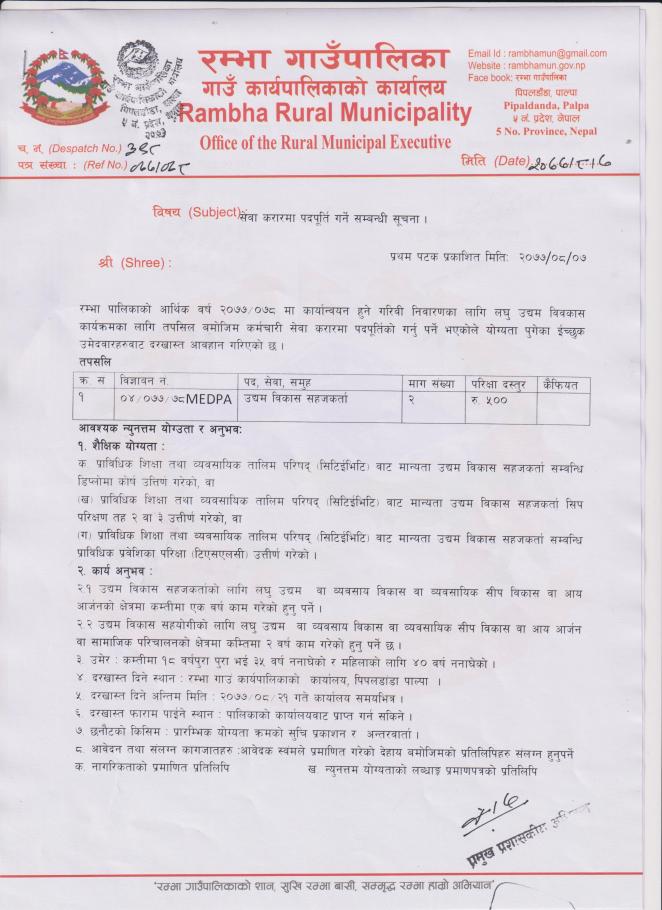 रम्भा गाउँपालिका
गाउँ कार्यपालिकाको कार्यालय
Rambha Rural Municipality
Office of the Rural Municipal Executive
Email Id : rambhamun@gmail.com
Website : rambhamun.gov.np
Face book: रम्भा गाउँपालिका
पिपलडाँडा, पाल्पा
Pipaldanda, Palpa
५ नं. प्रदेश, नेपाल
5 No. Province, Nepal
च. नं. (Despatch No.) ३९८
पत्र संख्या : (Ref No.) ०७७/०७८
मिति (Date)
विषय (Subject) सेवा करारमा पदपूर्ति गर्ने सम्बन्धी सूचना ।
श्री (Shree) :
प्रथम पटक प्रकाशित मितिः २०७७/०८/०७
रम्भा पालिकाको आर्थिक वर्ष २०७७/०७८ मा कार्यान्वयन हुने गरिवी निवारणका लागि लघु उद्यम विवकास
कार्यक्रमका लागि तपसिल बमोजिम कर्मचारी सेवा करारमा पदपूर्तिको गर्नु पर्ने भएकोले योग्यता पुगेका ईच्छुक
उमेदवारहरुबाट दरखास्त आवहान गरिएको छ ।
तपसलि
क्र स विज्ञावन नं. पद, सेवा, समुह माग संख्या परिक्षा दस्तुर कैफियत
१ ०४/०७७/७८MEDPA उद्यम विकास सहजकर्ता २ रु. ५००
आवश्यक न्युनत्तम योग्उता र अनुभवः
१. शैक्षिक योग्यता :
क. प्राविधिक शिक्षा तथा व्यवसायिक तालिम परिषद् (सिटिईभिटि) बाट मान्यता उद्यम विकास सहजकर्ता सम्वन्धि
डिप्लोमा कोर्ष उत्तिर्ण गरेको, वा
(ख) प्राविधिक शिक्षा तथा व्यवसायिक तालिम परिषद् (सिटिईभिटि) बाट मान्यता उद्यम विकास सहजकर्ता सिप
परिक्षण तह २ वा ३ उत्तीर्ण गरेको, वा
(ग) प्राविधिक शिक्षा तथा व्यवसायिक तालिम परिषद् (सिटिईभिटि) बाट मान्यता उद्यम विकास सहजकर्ता सम्वन्धि
प्राविधिक प्रवेशिका परिक्षा (टिएसएलसी) उत्तीर्ण गरेको ।
२. कार्य अनुभव :
२.१ उद्यम विकास सहजकर्ताको लागि लघु उद्यम वा व्यवसाय विकास वा व्यवसायिक सीप विकास वा आय
आर्जनको क्षेत्रमा कम्तीमा एक वर्ष काम गरेको हुनु पर्ने ।
२.२ उद्यम विकास सहयोगीको लागि लघु उद्यम वा व्यवसाय विकास वा व्यवसायिक सीप विकास वा आय आर्जन
वा सामाजिक परिचालनको क्षेत्रमा कम्तिमा २ वर्ष काम गरेको हुनु पर्ने छ ।
३. उमेर : कम्तीमा १८ वर्षपुरा पुरा भई ३५ वर्ष ननाघेको र महिलाको लागि ४० बर्ष ननाघेको ।
४. दरखास्त दिने स्थान : रम्भा गाउँ कार्यपालिकाको कार्यालय, पिपलडांडा पाल्पा ।
५. दरखास्त दिने अन्तिम मिति : २०७७/०८/२१ गते कार्यालय समयभित्र ।
६. दरखास्त फाराम पाईने स्थान : पालिकाको कार्यालयवाट प्राप्त गर्न सकिने ।
७. छनौटको किसिम : प्रारम्भिक योग्यता क्रमको सुचि प्रकाशन र अन्तरवार्ता ।
८. आवेदन तथा संलग्न कागजातहरु :आवेदक स्वंमले प्रमाणित गरेको देहाय बमोजिमको प्रतिलिपिहरु संलग्न हुनुपर्ने
क. नागरिकताको प्रमाणित प्रतिलिपि ख. न्युनत्तम योग्यताको लब्धाङ्क प्रमाणपत्रको प्रतिलिपि
प्रमुख प्रशासकीय
"रम्भा गाउँपालिकाको शान, सुखि रम्भा बासी, सम्मृद्ध रम्भा हाम्रो अभियान"